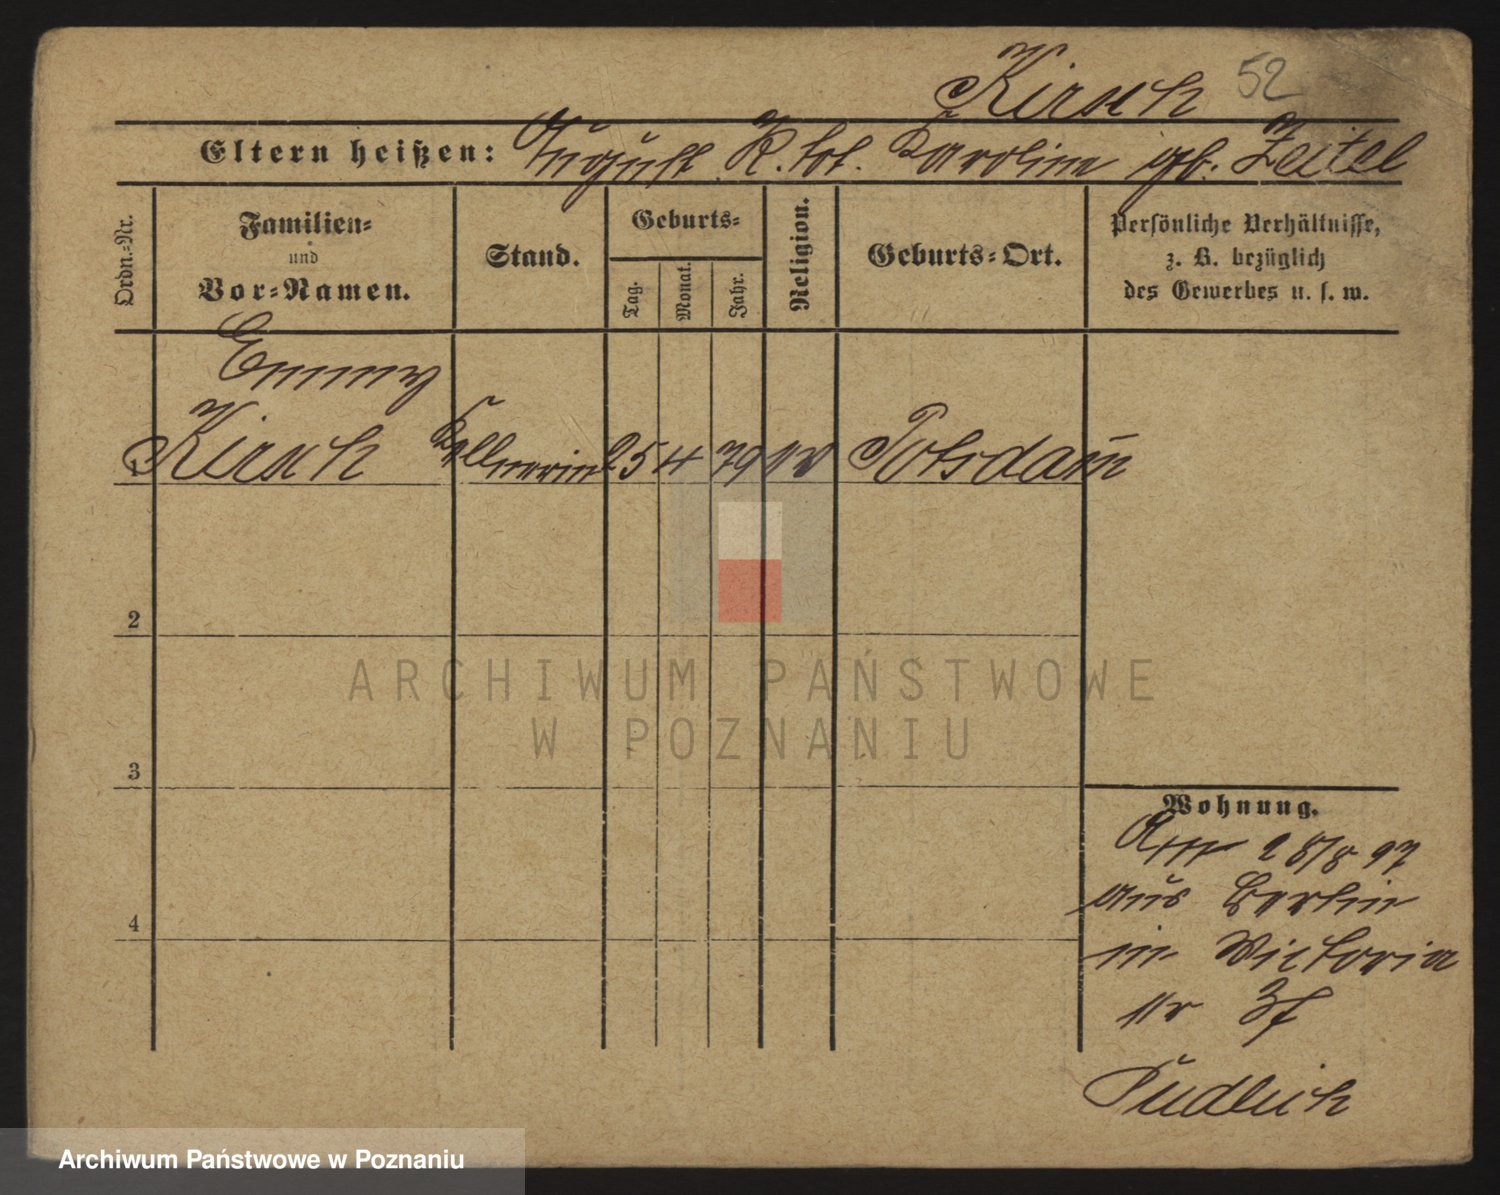 Kirsch 52
Eltern heißen: August K. tot. Karoline gb. Zeitel
Ordn.-Nr.
Familien-
und
Vor-Namen.
Stand.
Geburts-
Tag.
Monat.
Jahr.
Religion.
Geburts-Ort.
Persönliche Verhältnisse,
z. B. bezüglich
des Gewerbes u. s. w.
Emmy
1 Kirsch Kellnerin 25 4 79 Potsdam
2
3
4
Wohnung.
28/8 97
aus Berlin
in Victoria
Pudlich
ARCHIWUM PAŃSTWOWE
W POZNANIU
Archiwum Państwowe w Poznaniu